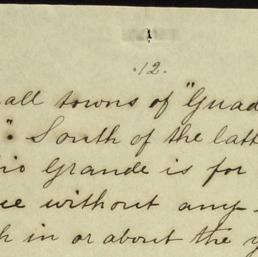 .12.
all towns of "Guad
". South of the latt
io Grande is for
ue without any-
h in or about the y